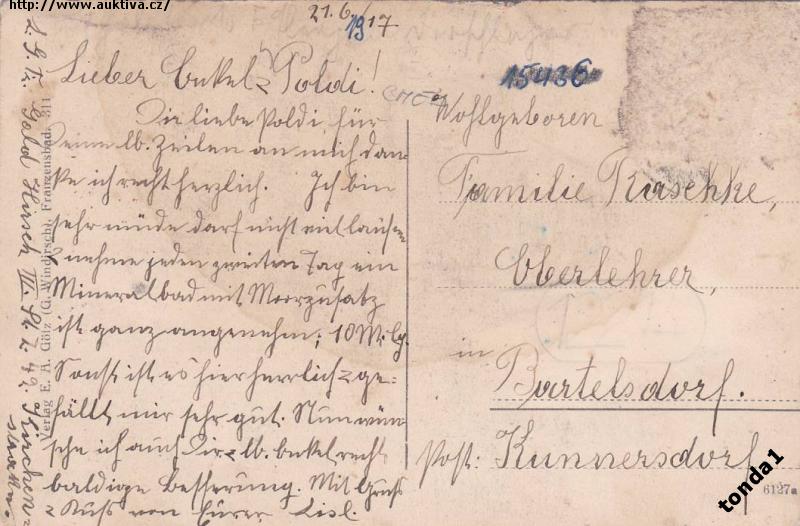 http://www.auktiva.cz/
21.6.1917
Lieber Onkel & Poldi!
Dir liebe Poldi für
Deine lb. Zeilen an mich dan-
ke ich recht herzlich. Ich bin
sehr müde darf nicht viel laufen
& nehme jeden zweiten Tag ein
Mineralbad mit Moorzusatz
ist ganz angenehm; 10 M.
Sonst ist es hier herrlich & ge-
fällt mir sehr gut. Nun wün-
sche ich auch Dir lb. Onkel recht
baldige Besserung. Mit Gruß
& Kuss von Eurer Lisl.
15436
Wohlgeboren
Familie Raschke,
Oberlehrer,
in
Bartelsdorf.
Post: Kunnersdorf
6127a
Verlag E. A. Götz (G. Windirsch), Franzensbad. 311
Hirsch III. Z. 49.
tonda1